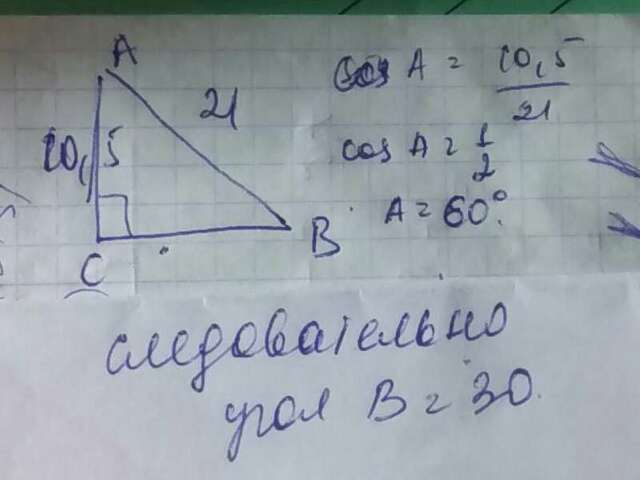 A
21
10,5
C
B
cos A = 10,5/21
cos A = 1/2
A = 60°.
следовательно
угол B = 30.